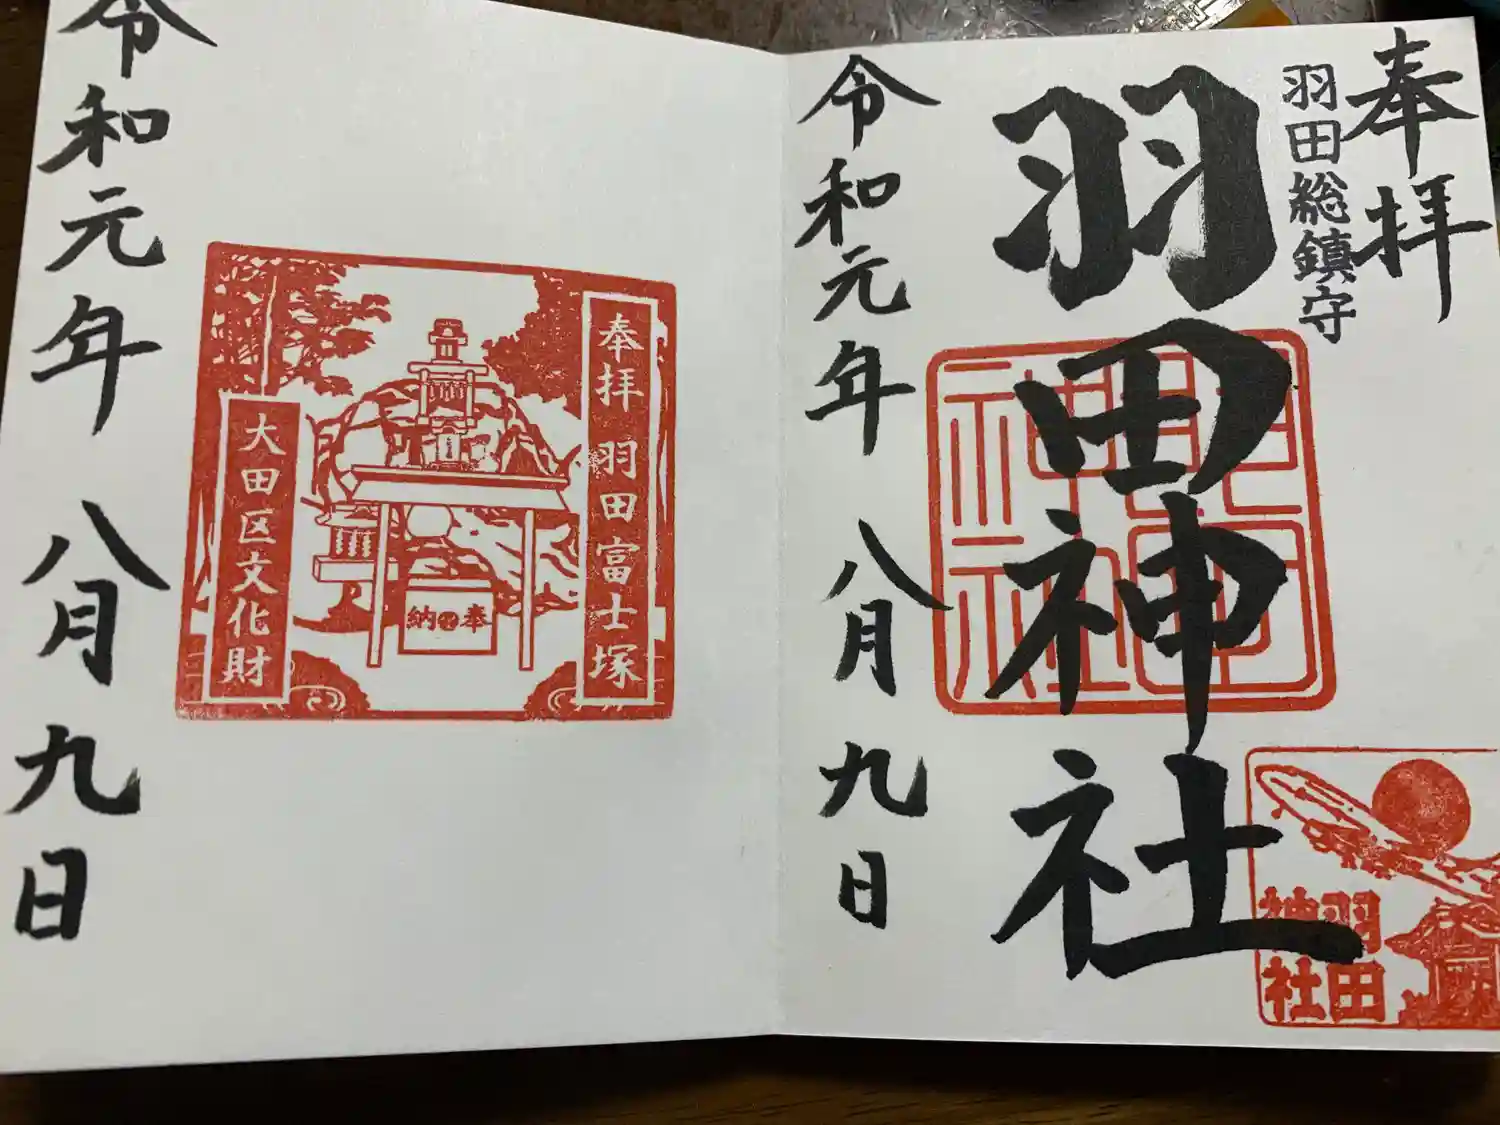 奉拝
羽田総鎮守
羽田神社
羽田
神社
令和元年 八月 九日
奉拝 羽田富士塚
奉納
大田区文化財
令和元年 八月 九日